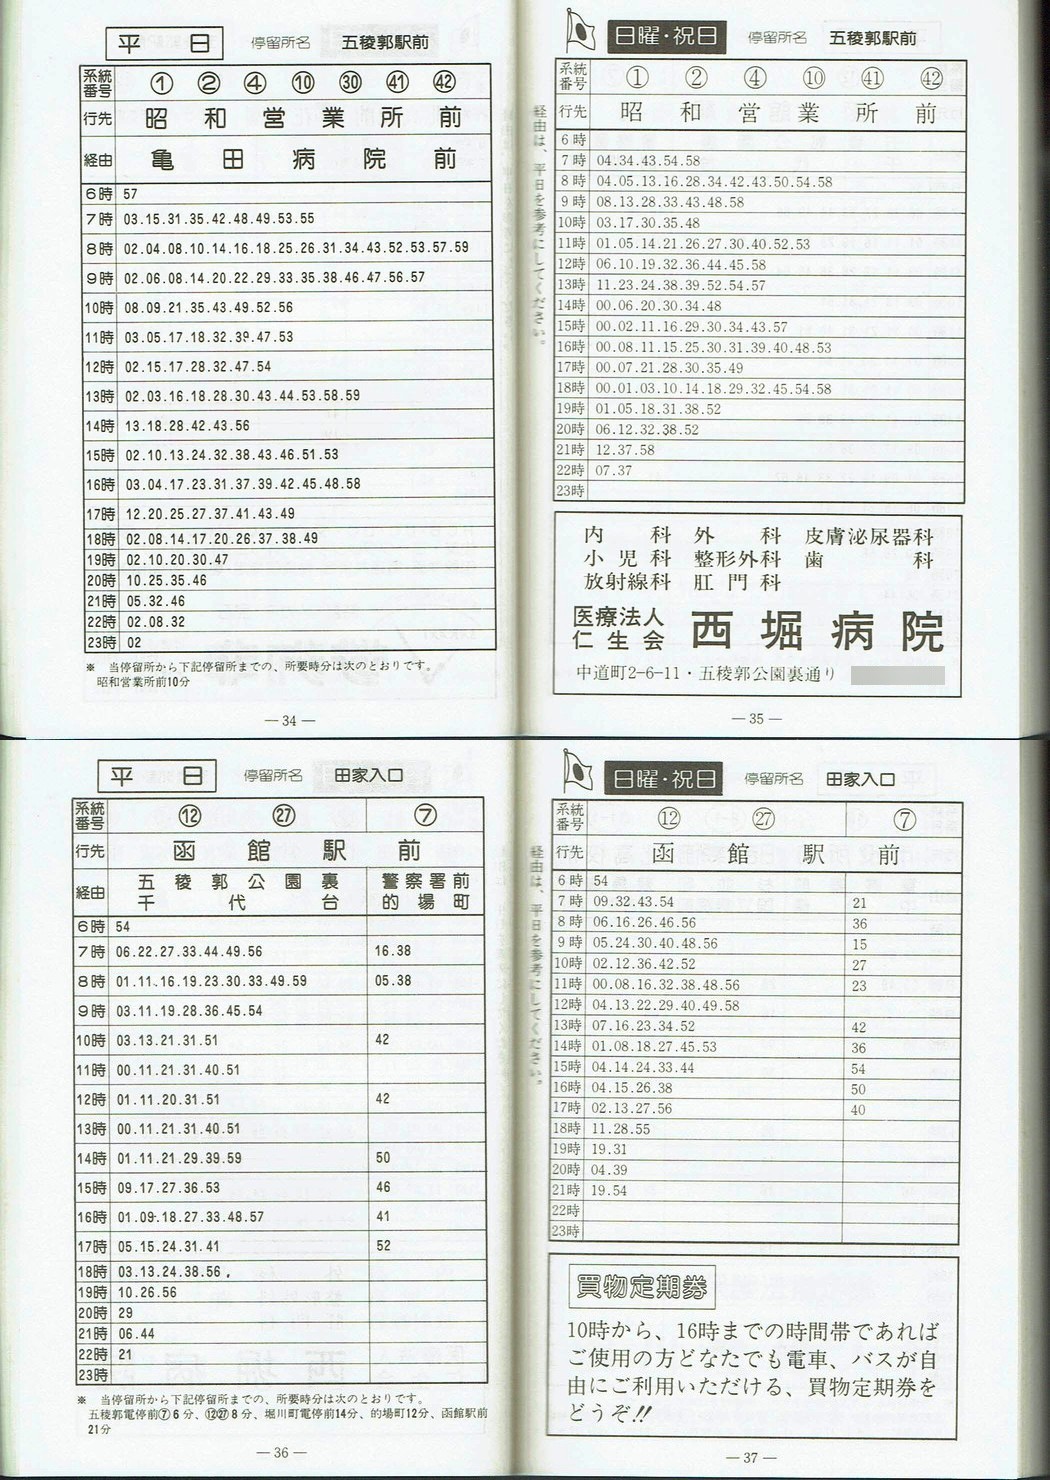 平 日 停留所名 五稜郭駅前
系統番号 ① ② ④ ⑩ ㉚ ㊶ ㊷
行先 昭和営業所前
経由 亀田病院前
6時 57
7時 03.15.31.35.42.48.49.53.55
8時 02.04.08.10.14.16.18.25.26.31.34.43.52.53.57.59
9時 02.06.08.14.20.22.29.33.35.38.46.47.56.57
10時 08.09.21.35.43.49.52.56
11時 03.05.17.18.32.39.47.53
12時 02.15.17.28.32.47.54
13時 02.03.16.18.28.30.43.44.53.58.59
14時 13.18.28.42.43.56
15時 02.10.13.24.32.38.43.46.51.53
16時 03.04.17.23.31.37.39.42.45.48.58
17時 12.20.25.27.37.41.43.49
18時 02.08.14.17.20.26.37.38.49
19時 02.10.20.30.47
20時 10.25.35.46
21時 05.32.46
22時 02.08.32
23時 02
※ 当停留所から下記停留所までの、所要時分は次のとおりです。
昭和営業所前10分
— 34 —
日曜・祝日 停留所名 五稜郭駅前
経由は、平日を参考にしてください。
系統番号 ① ② ④ ⑩ ㊶ ㊷
行先 昭和営業所前
6時
7時 04.34.43.54.58
8時 04.05.13.16.28.34.42.43.50.54.58
9時 08.13.28.33.43.48.58
10時 03.17.30.35.48
11時 01.05.14.21.26.27.30.40.52.53
12時 06.10.19.32.36.44.45.58
13時 11.23.24.38.39.52.54.57
14時 00.06.20.30.34.48
15時 00.02.11.16.29.30.34.43.57
16時 00.08.11.15.25.30.31.39.40.48.53
17時 00.07.21.28.30.35.49
18時 00.01.03.10.14.18.29.32.45.54.58
19時 01.05.18.31.38.52
20時 06.12.32.38.52
21時 12.37.58
22時 07.37
23時
内科 外科 皮膚泌尿器科
小児科 整形外科 歯科
放射線科 肛門科
医療法人 仁生会 西堀病院
中道町2-6-11・五稜郭公園裏通り
— 35 —
平 日 停留所名 田家入口
系統番号 ⑫ ㉗ ⑦
行先 函館駅前
経由 五稜郭公園裏 千代台 警察署前 的場町
6時 54
7時 06.22.27.33.44.49.56 16.38
8時 01.11.16.19.23.30.33.49.59 05.38
9時 03.11.19.28.36.45.54
10時 03.13.21.31.51 42
11時 00.11.21.31.40.51
12時 01.11.20.31.51 42
13時 00.11.21.31.40.51
14時 01.11.21.29.39.59 50
15時 09.17.27.36.53 46
16時 01.09.18.27.33.48.57 41
17時 05.15.24.31.41 52
18時 03.13.24.38.56
19時 10.26.56
20時 29
21時 06.44
22時 21
23時
※ 当停留所から下記停留所までの、所要時分は次のとおりです。
五稜郭電停前⑦6分、⑫㉗8分、堀川町電停前14分、的場町12分、函館駅前
21分
— 36 —
日曜・祝日 停留所名 田家入口
経由は、平日を参考にしてください。
系統番号 ⑫ ㉗ ⑦
行先 函館駅前
6時 54
7時 09.32.43.54 21
8時 06.16.26.46.56 36
9時 05.24.30.40.48.56 15
10時 02.12.36.42.52 27
11時 00.08.16.32.38.48.56 23
12時 04.13.22.29.40.49.58
13時 07.16.23.34.52 42
14時 01.08.18.27.45.53 36
15時 04.14.24.33.44 54
16時 04.15.26.38 50
17時 02.13.27.56 40
18時 11.28.55
19時 19.31
20時 04.39
21時 19.54
22時
23時
買物定期券
10時から、16時までの時間帯であれば
ご使用の方どなたでも電車、バスが自
由にご利用いただける、買物定期券を
どうぞ!!
— 37 —